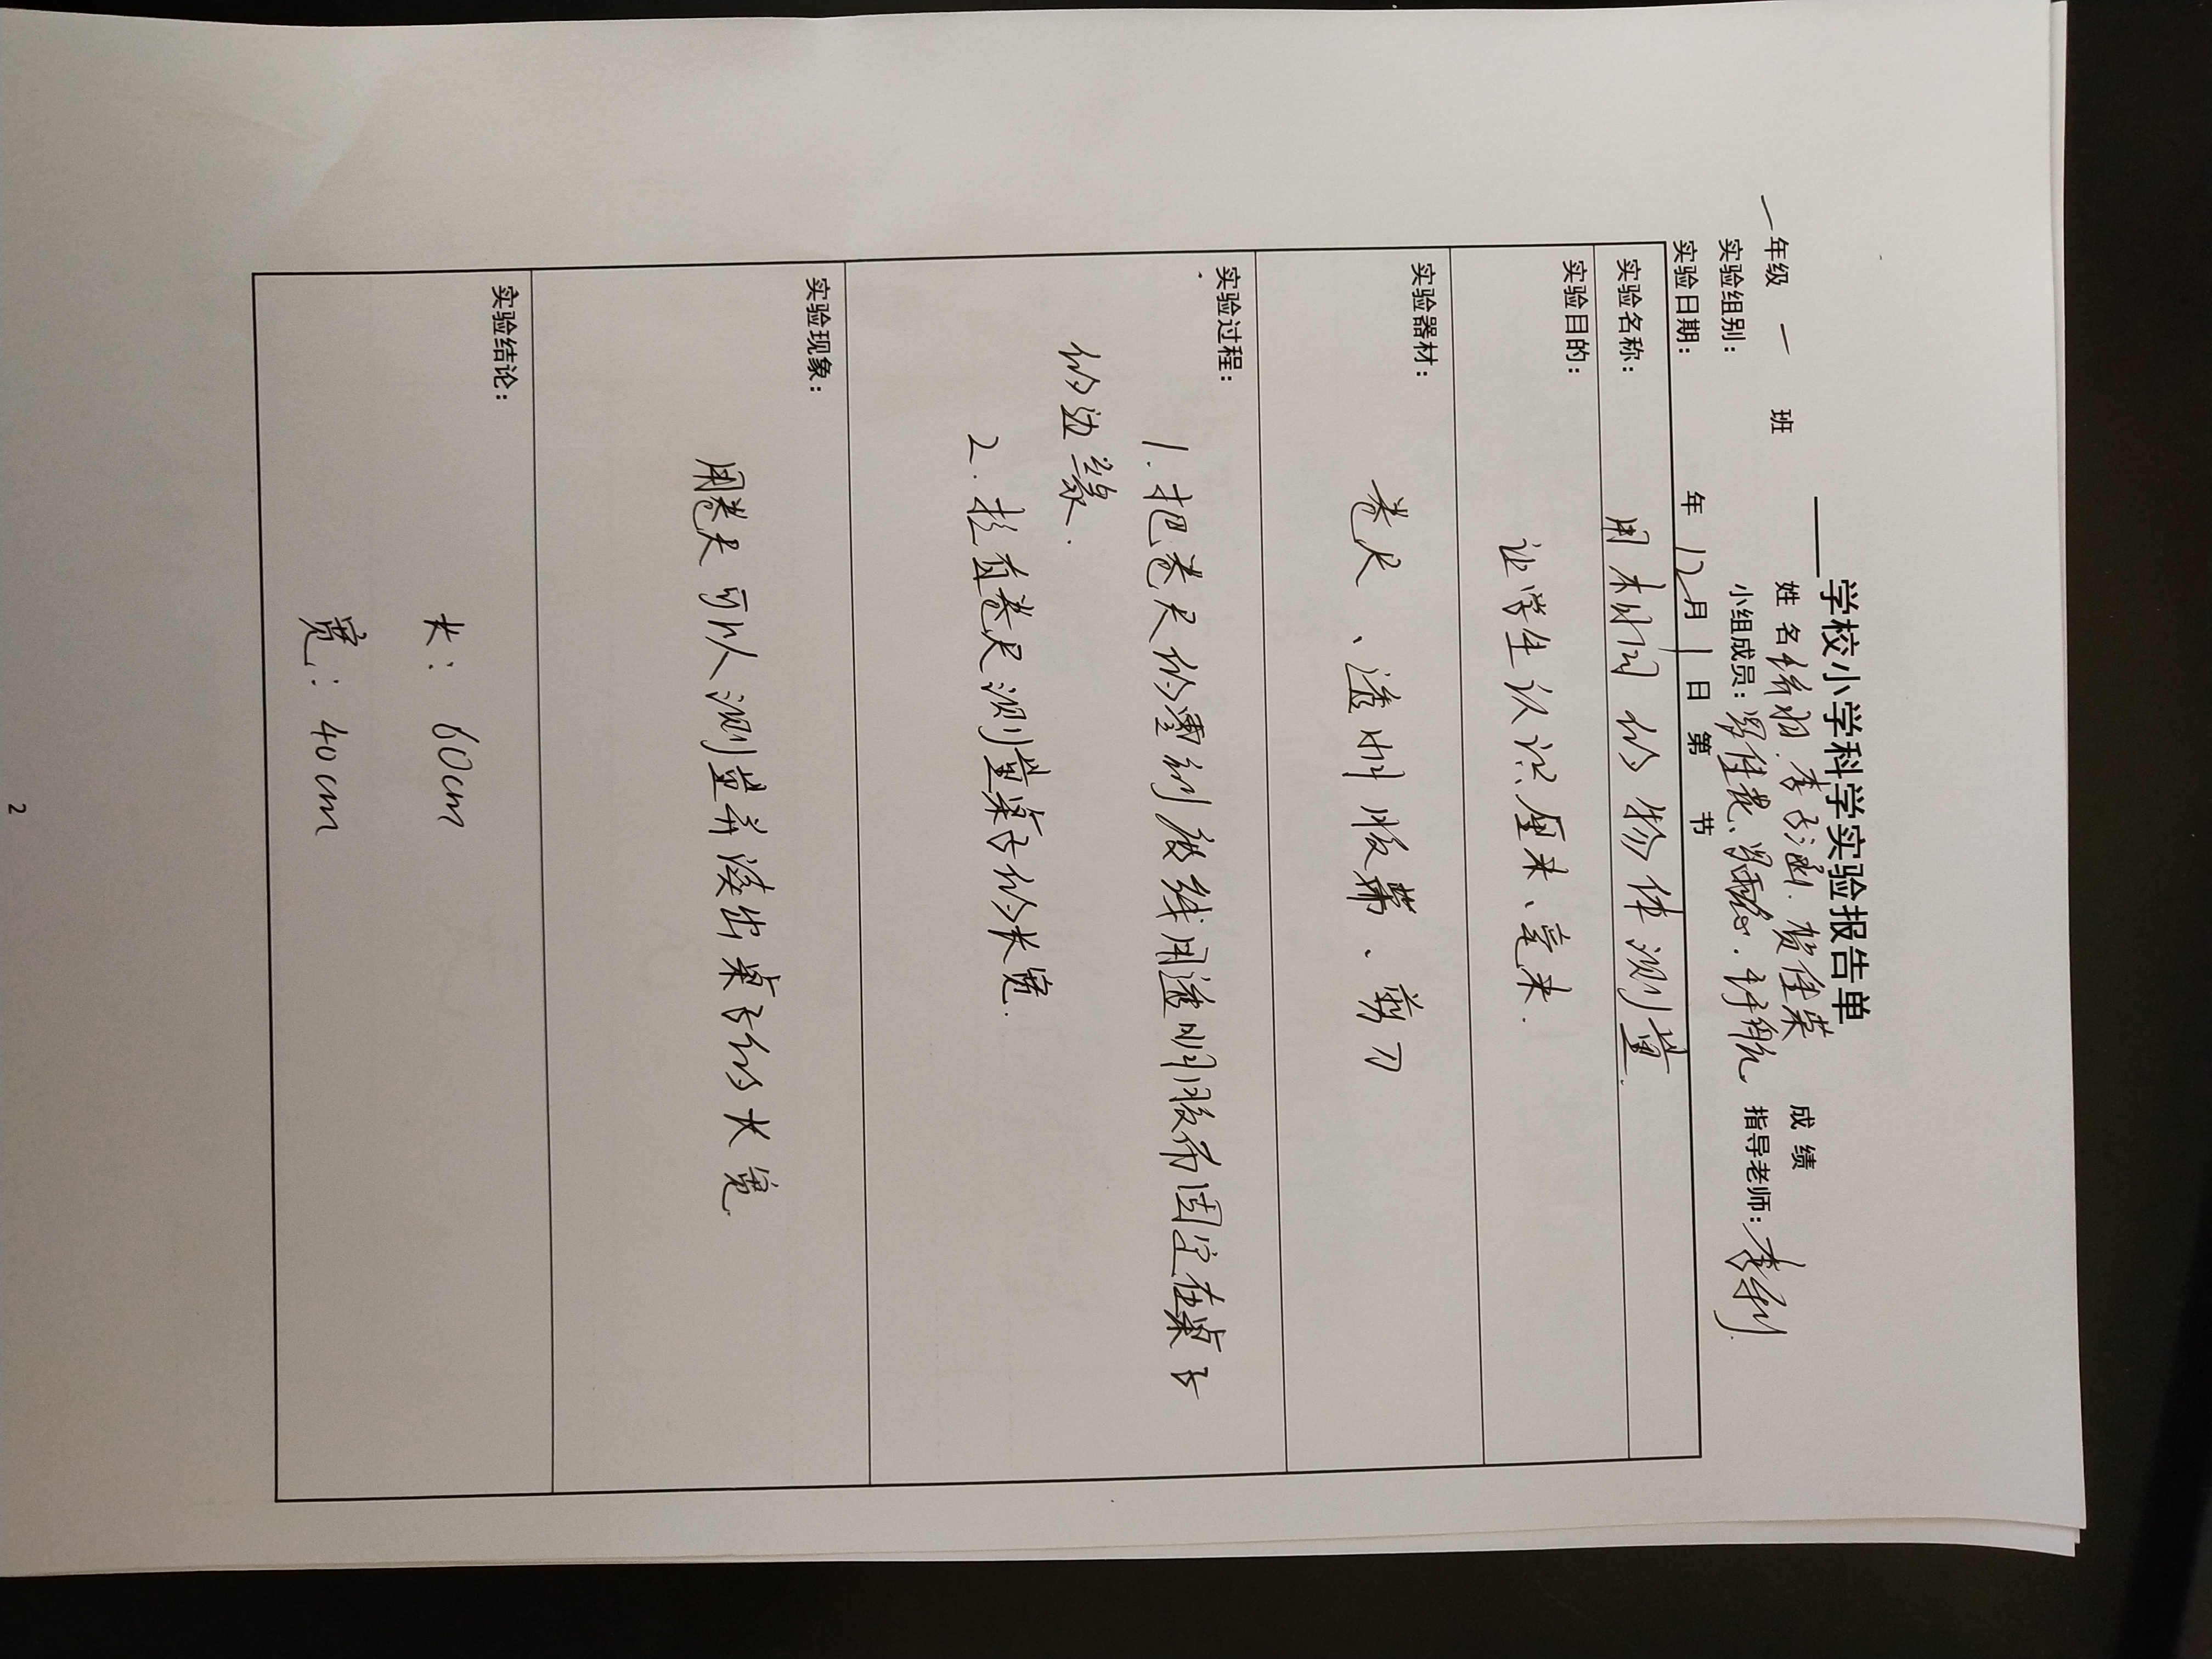 学校小学科学实验报告单
一年级 一 班 姓 名 李子涵. 贺佳荣 成 绩
实验组别: 小组成员: 指导老师: 李利
实验日期: 年 12月 1日 第 节
实验名称: 用相同的物体测量.
实验目的:
让学生认识厘米、毫米.
实验器材:
卷尺、透明胶带、剪刀
实验过程:
1.把卷尺的零刻度线用透明胶布固定在桌子
的边缘.
2.拉直卷尺测量桌子的长宽.
实验现象:
用卷尺可以测量并读出桌子的长宽.
实验结论:
长: 60cm
宽: 40cm
2